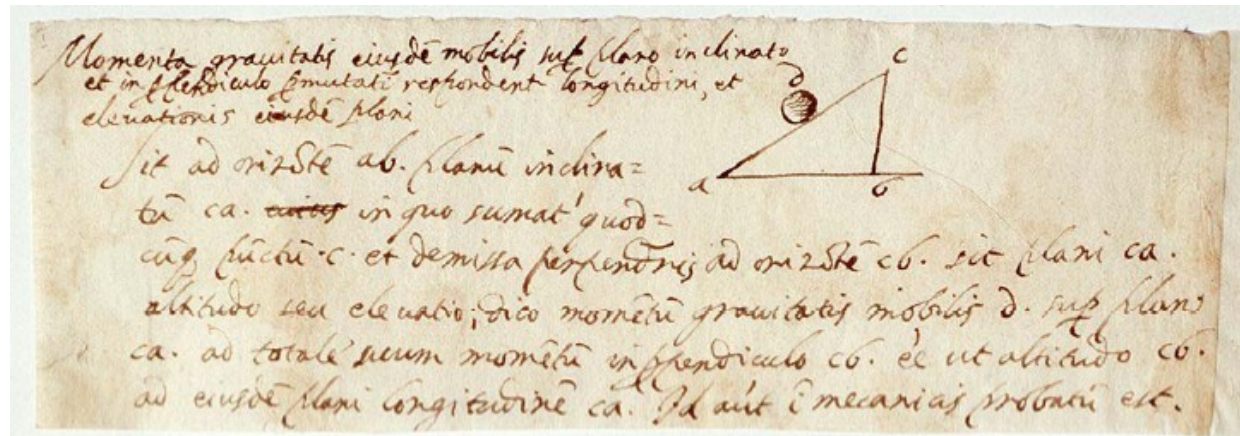 Momenta gravitatis eiusdē mobilis sup̱ plano inclinato
et in p̱pēdiculo p̱mutatī respondent longitudini, et
elevationis eiusdē plani
d
c
a
b
sit ad orizōtē ab. planū inclina=
tū ca. in quo sumat' quod=
cūq punctū c. et demissa ad orizōtē cb. sit plani ca.
altitudo seu elevatio; dico momētū gravitatis mobilis d. sup̱ plano
ca. ad totale suum momētū in p̱pendiculo cb. eē ut altitudo cb.
ad eiusdē plani longitudinē ca. Id aūt ī mecanicis probatū est.